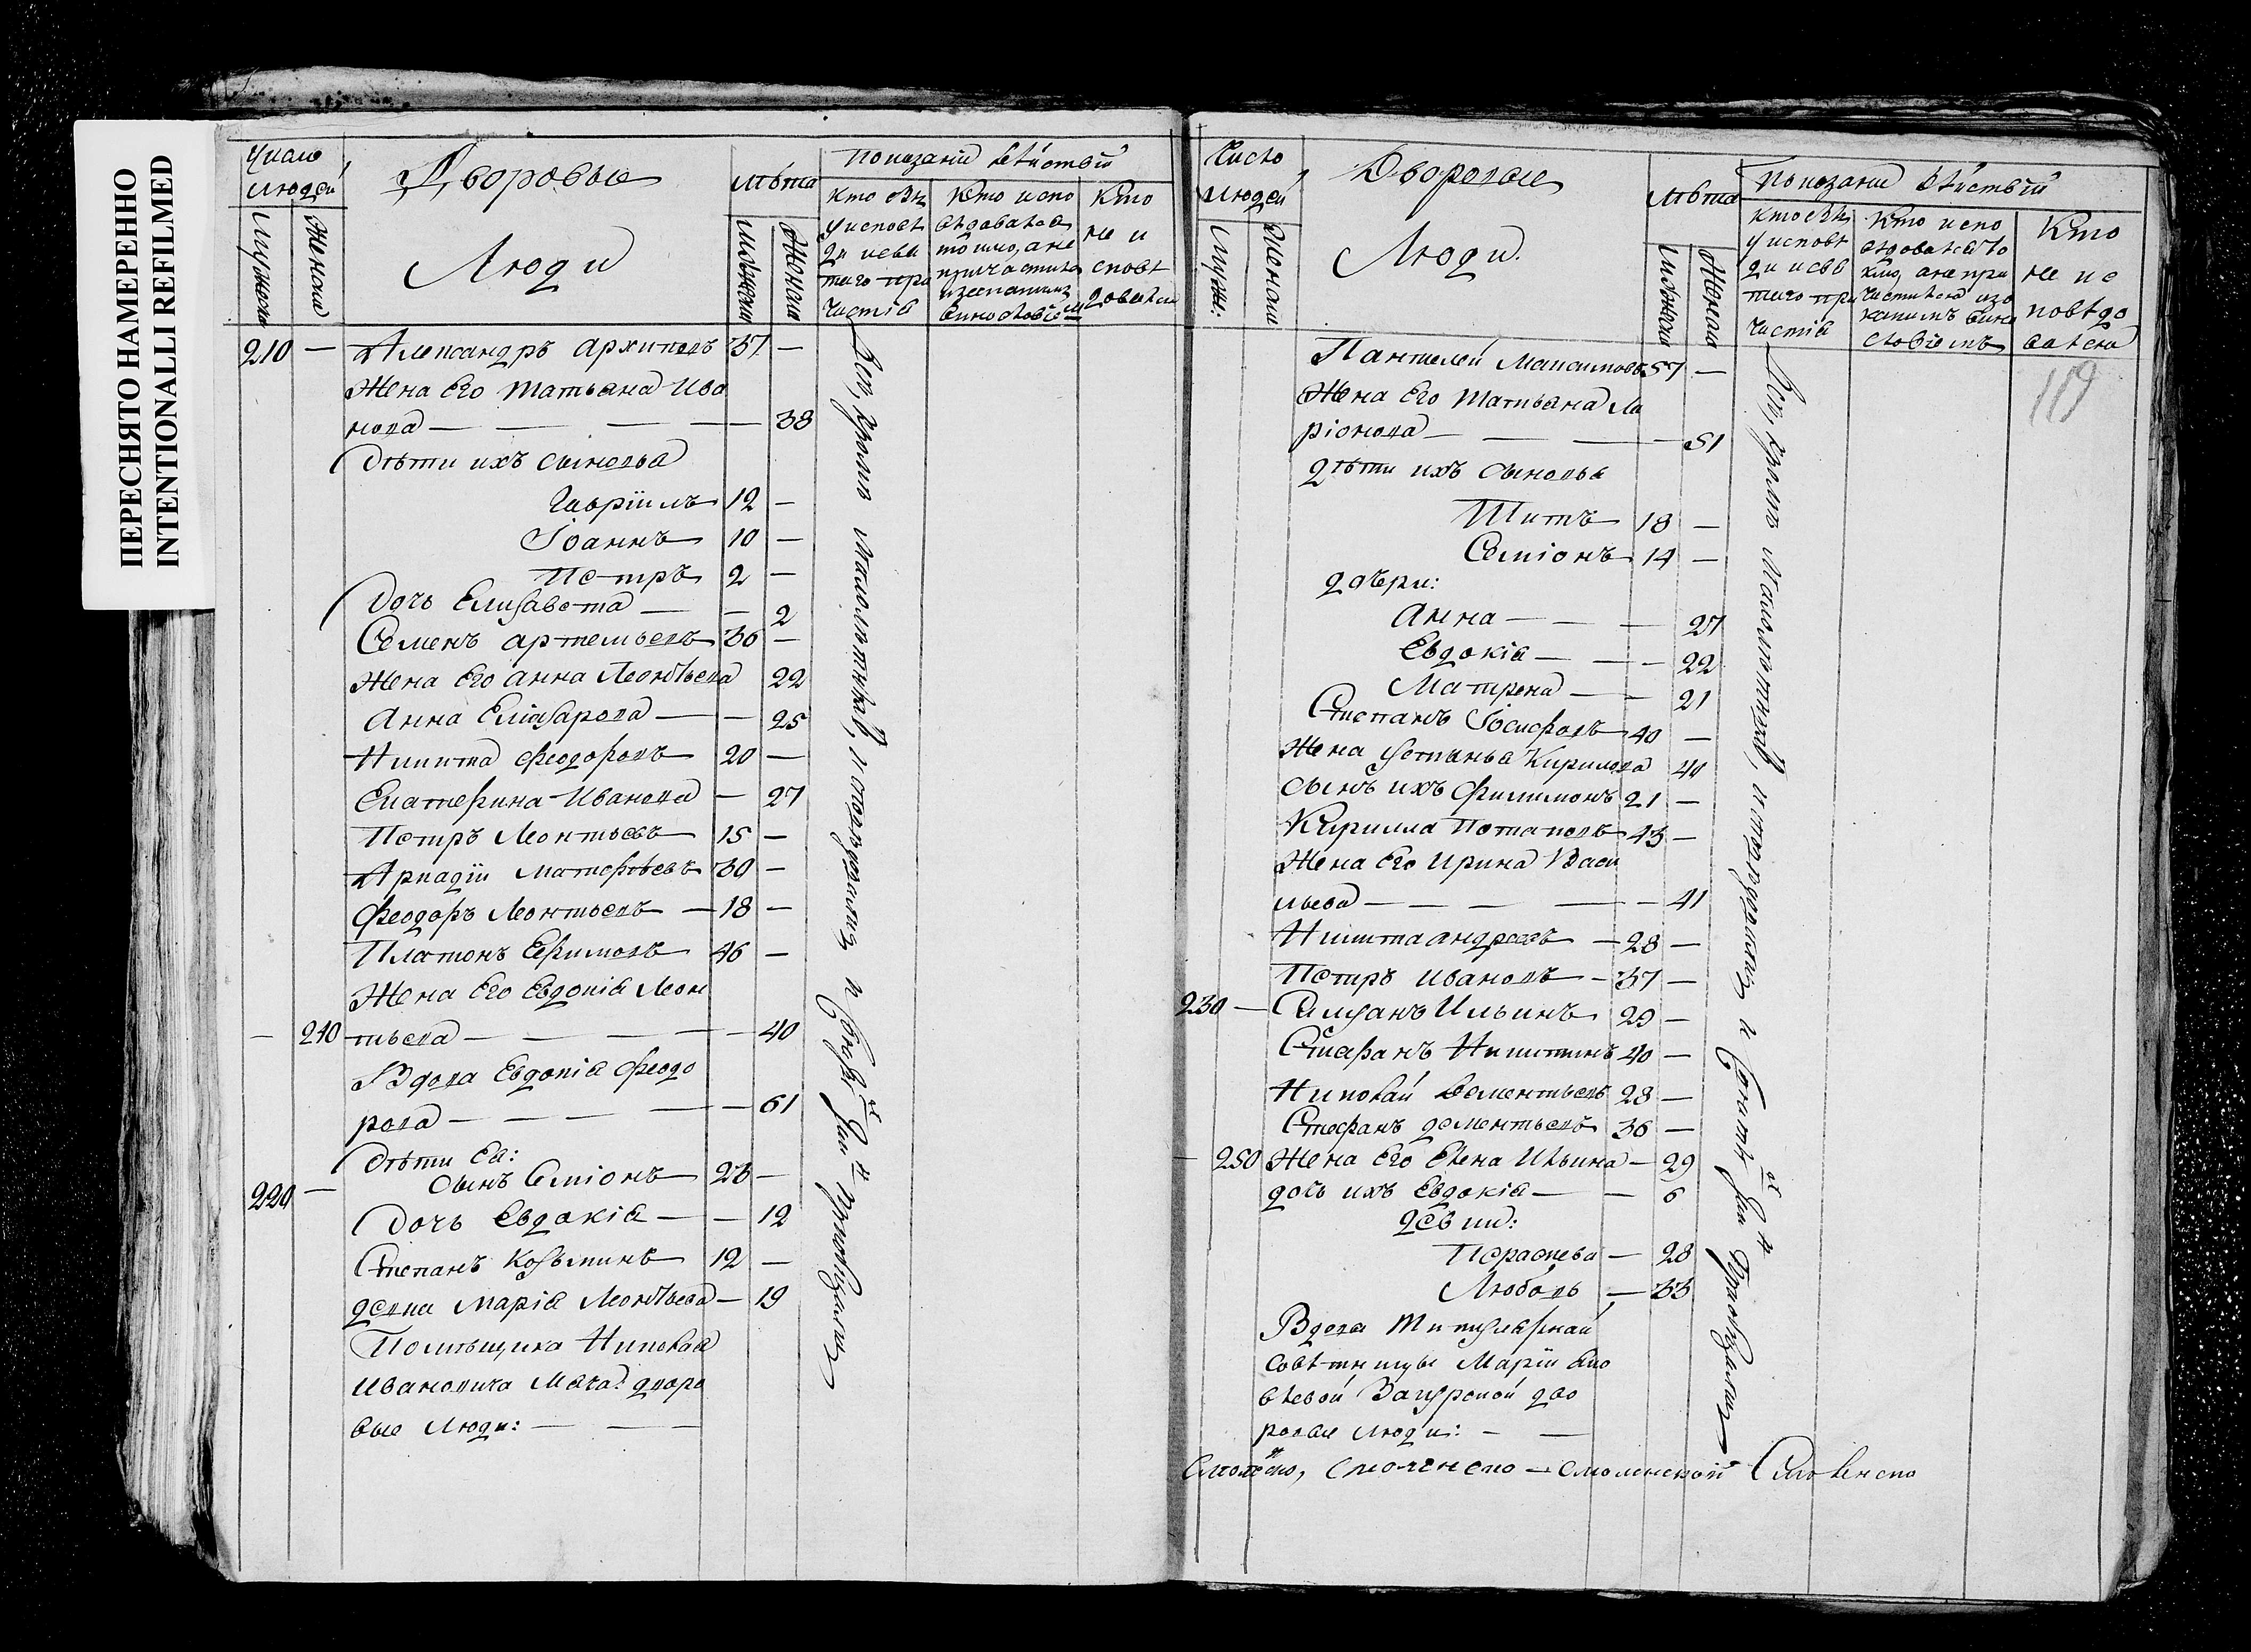 ПЕРЕСНЯТО НАМЕРЕННО
INTENTIONALLI REFILMED
Число людей
Мужеска
Женска
Дворовые
Люди
лѣта
Мужеска
Женска
Показаніе дѣйствій
Кто былъ у исповѣди и святаго причастія
Кто исповѣдовался токмо, а не причастился
Кто не исповѣдовался
210 — Александръ Архиповъ 37 —
Жена Его Татьяна Ива
нова — — — — 38
Дѣти ихъ сыновья
Гавріилъ 12 —
Іоаннъ 10 —
Петръ 2 —
Дочь Елисавета — — 2
Семенъ Артемьевъ 36 —
Жена Его Анна Леонтьева 22
Анна Еліазарова — — 25
Никита Феодоровъ 20 —
Екатерина Иванова — 27
Петръ Леонтьевъ 15 —
Аркадіи Матфѣевъ 30 —
Феодоръ Леонтьевъ — 18 —
Платонъ Ефимовъ 46 —
Жена Его Евдокіа Леон
— 210 тьева — — — — 40
Вдова Евдокіа Феодо
рова — — — — 61
Дѣти Еа:
220 — Сынъ Симіонъ 23 —
Дочь Евдокіа — — 12
Степанъ Козьминъ 12 —
девка Маріа Леонтьева — 19
Помѣщика Николая
Ивановича дворо
вые Люди: — —
Всѣ, кромѣ малолѣтныхъ
Число
Людей
Муж:
Женска
Дворовые
Люди.
Лѣта
Мужеска
Женска
Показаніе дѣйствій
Кто былъ у исповѣди и святаго причастія
Кто исповѣдовался токмо, а не причастился
Кто не исповѣдовался
119
Пантелей Максимовъ 57 —
Жена Его Татьяна Ла
ріонова — — — 51
дѣти ихъ сыновья
Титъ 18 —
Семіонъ 14 —
дочери:
Анна — — — 27
Евдокіа — — 22
Матрена — — 21
Степанъ Іосифовъ 40 —
Жена Устинья Кирилова 40
Сынъ ихъ Филимонъ 21 —
Кирилла Потаповъ 43 —
Жена Его Ирина Васи
льева — — — — 41
Никита Андреевъ — 28 —
Петръ Ивановъ — 37 —
230 — Ильинъ 29 —
Стефанъ Никитинъ 40 —
Николай Дементьевъ 28 —
Стефанъ Дементьевъ 36 —
— 250 Жена Его Елена Ильина — 29
дочь ихъ Евдокіа — — 6
девки:
Параскева — 28
Любовь — 33
Вдова Титулярной
Совѣтницы Маріи Яко
влевой Загурской дво
ровые люди: — —
Всѣ, кромѣ малолѣтныхъ
Смоленской